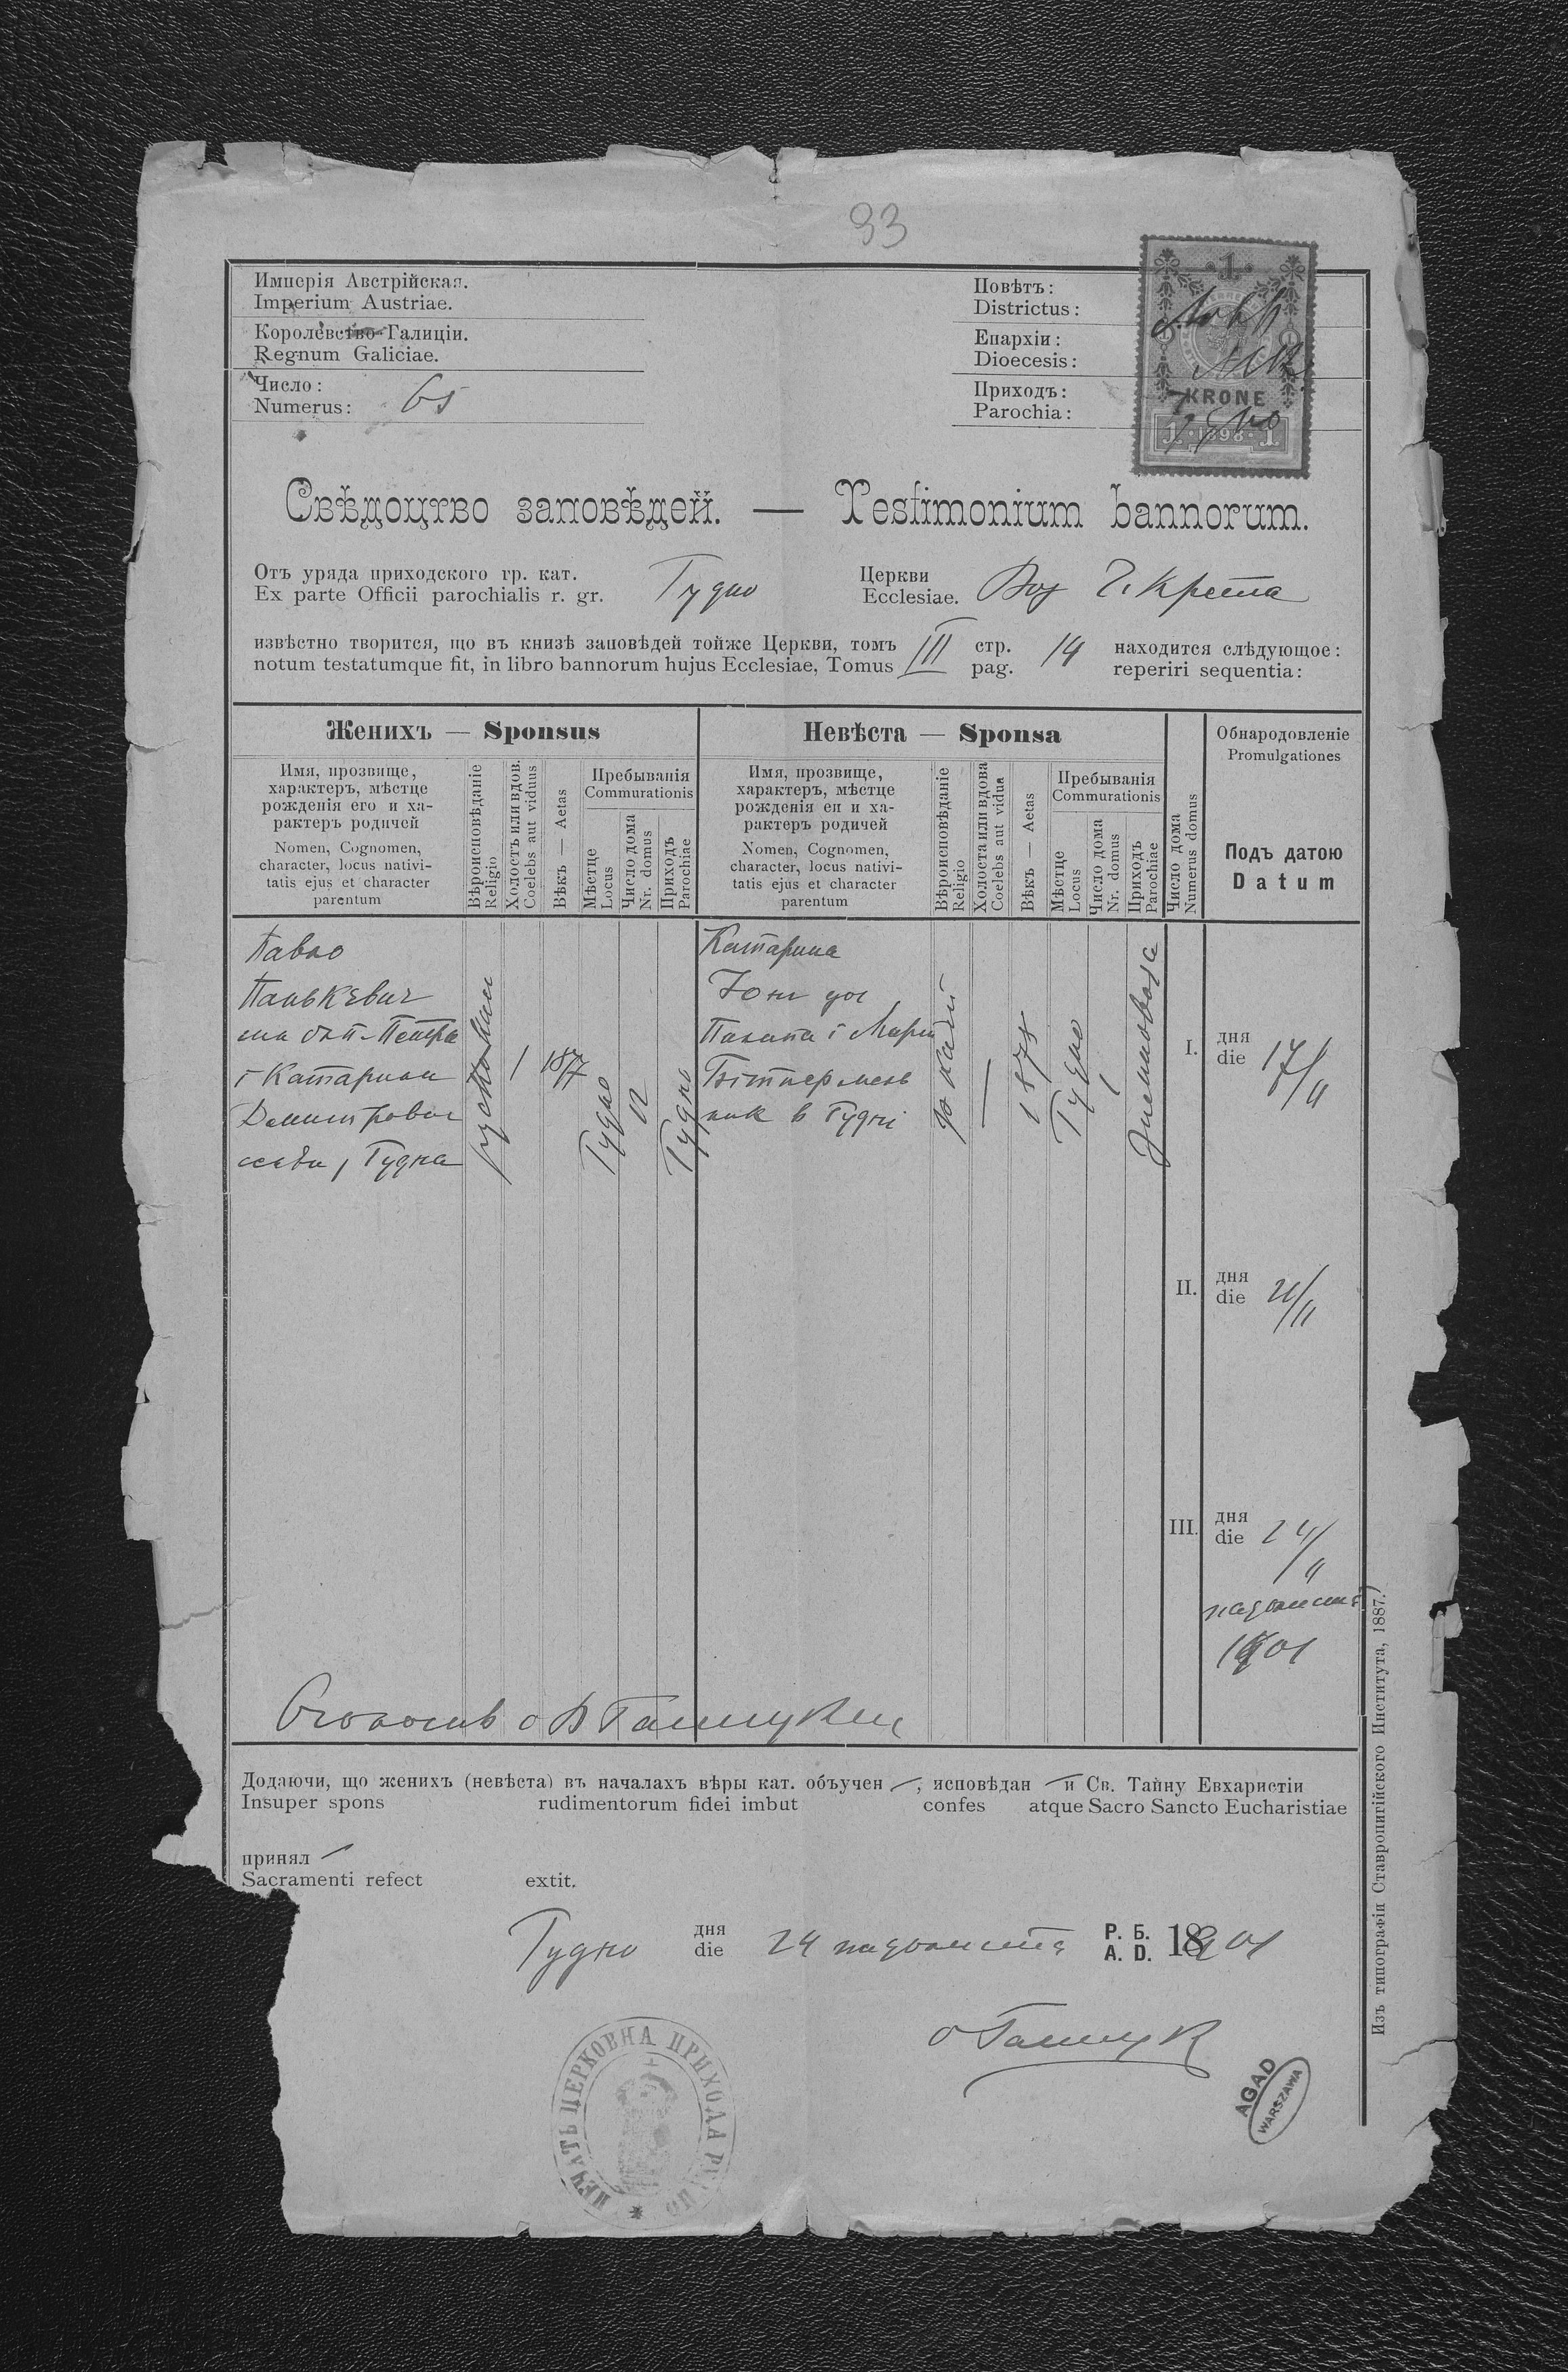 93
Имперія Австрійская.
Imperium Austriae.
Королевство Галиціи.
Regnum Galiciae.
Число:
Numerus: 65
Повѣтъ:
Districtus:
Епархіи:
Dioecesis:
Приходъ:
Parochia:
1
KRONE
1. 1898 1.
Свѣдоцтво заповѣдей. — Testimonium bannorum.
Отъ уряда приходского гр. кат.
Ex parte Officii parochialis r. gr. Гудно
Церкви
Ecclesiae. Воз Ч. Креста
извѣстно творится, що въ книзѣ заповѣдей тойже Церкви, томъ III стр. 14 находится слѣдующое:
notum testatumque fit, in libro bannorum hujus Ecclesiae, Tomus pag. reperiri sequentia:
Женихъ — Sponsus
Невѣста — Sponsa
Обнародовленіе
Promulgationes
Имя, прозвище,
характеръ, мѣстце
рожденія его и ха-
рактеръ родичей
Nomen, Cognomen,
character, locus nativi-
tatis ejus et character
parentum
Вѣроисповѣданіе
Religio
Холостъ или вдов.
Coelebs aut viduus
Вѣкъ — Aetas
Пребыванія
Commurationis
Мѣстце
Locus
Число дома
Nr. domus
Приходъ
Parochiae
Имя, прозвище,
характеръ, мѣстце
рожденія еи и ха-
рактеръ родичей
Nomen, Cognomen,
character, locus nativi-
tatis ejus et character
parentum
Вѣроисповѣданіе
Religio
Холоста или вдова
Coelebs aut vidua
Вѣкъ — Aetas
Пребыванія
Commurationis
Мѣстце
Locus
Число дома
Nr. domus
Приходъ
Parochiae
Число дома
Numerus domus
Подъ датою
Datum
Павло
Панькевич
Петра
і Катарини
Гудна
1877
Гудно
12
Гудно
Катарина
Юзи
і Марії
в Гудні
1878
Гудно
1
I. дня
die 17/11
II. дня
die 21/11
III. дня
die 24/11
падолиста
1901
Оголосив о В Галищук
Додаючи, що женихъ (невѣста) въ началахъ вѣры кат. объучен , исповѣдан и Св. Тайну Евхаристіи
Insuper spons rudimentorum fidei imbut confes atque Sacro Sancto Eucharistiae
принял
Sacramenti refect extit.
Гудно дня
die 24 падолиста Р. Б.
A. D. 1901
о Галищук
ПЕЧАТЬ ЦЕРКОВНА ПРИХОДА
AGAD
WARSZAWA
Изъ типографіи Ставропигійского Института, 1887.)